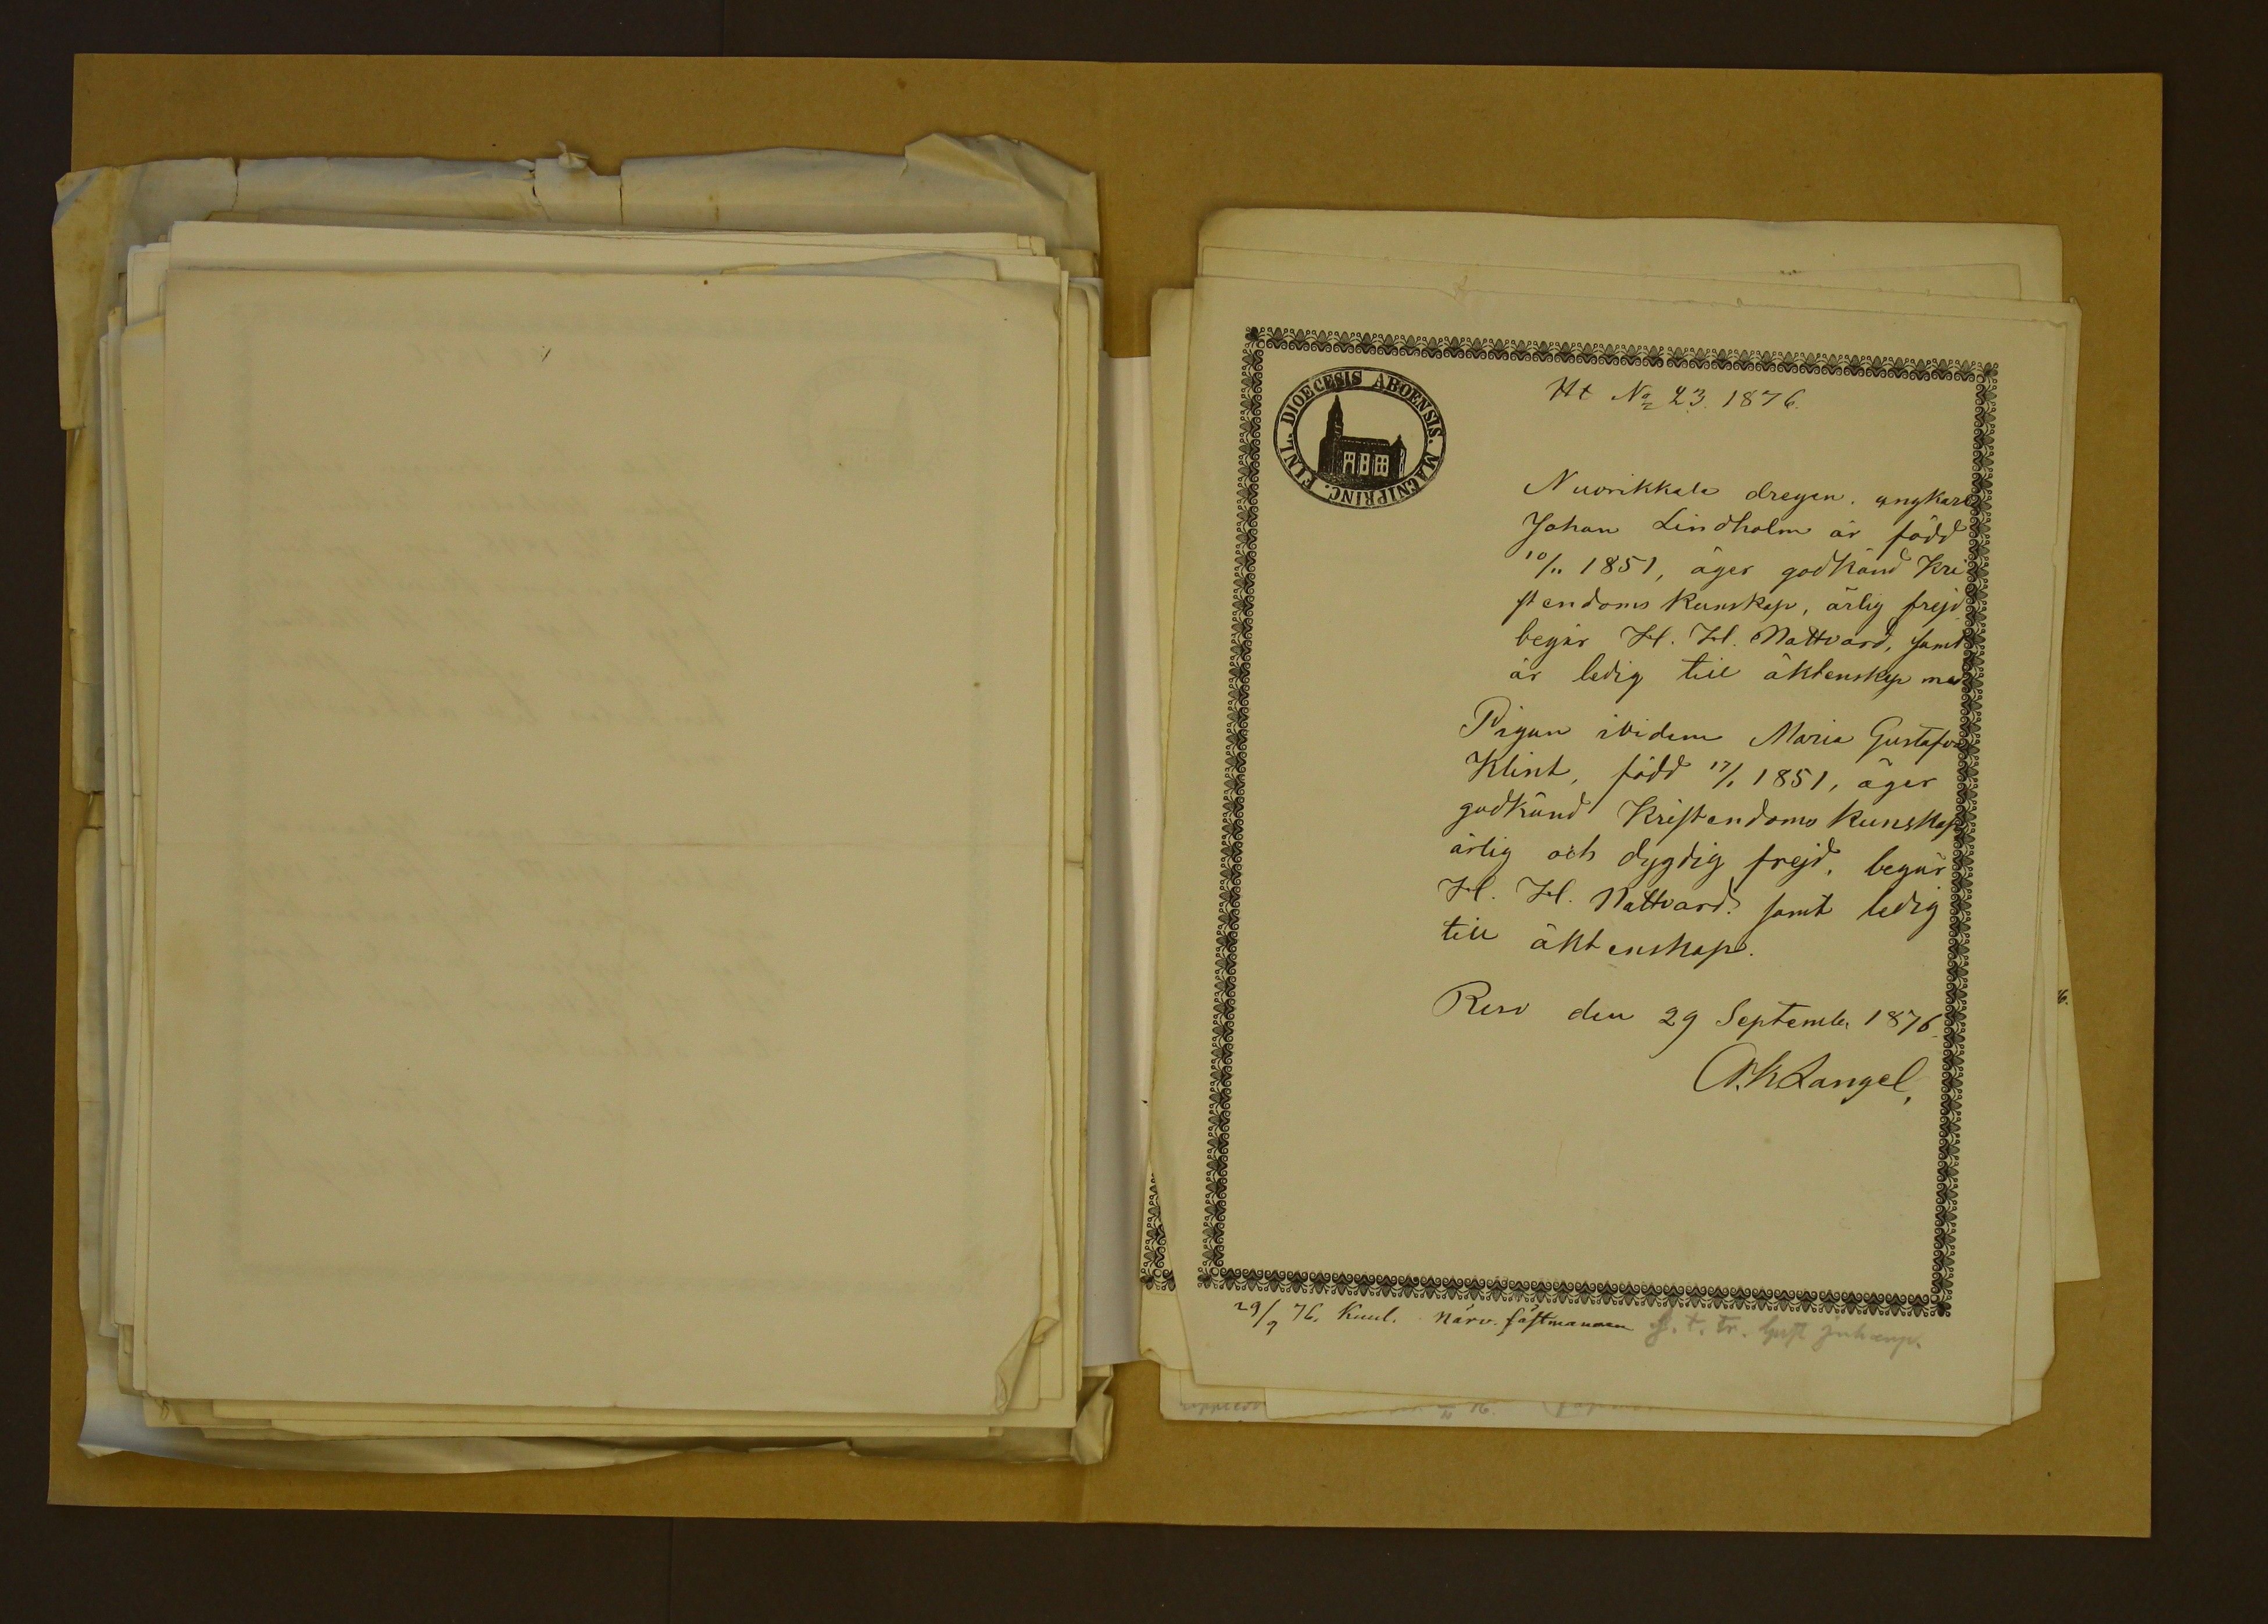 Ht No 23. 1876.
FINL. DIOECESIS ABOENSIS. MAGNIPRINC.
Nuorikkala drengen. ungkarl
Johan Lindholm är född
10/11 1851, äger godkänd Kri
stendoms Kunskap, ärlig frejd
begår H. H. Nattvard, samt
är ledig till äktenskap med
Pigan ibidem Maria Gustafva
Klint, född 17/1 1851, äger
godkänd Kristendoms Kunskap
ärlig och dygdig frejd, begår
H. H. Nattvard. samt ledig
till äktenskap.
Reso den 29 Septemb. 1876
Langel,
29/9 76. Kunl. närv. fästmannen f. t. tr.